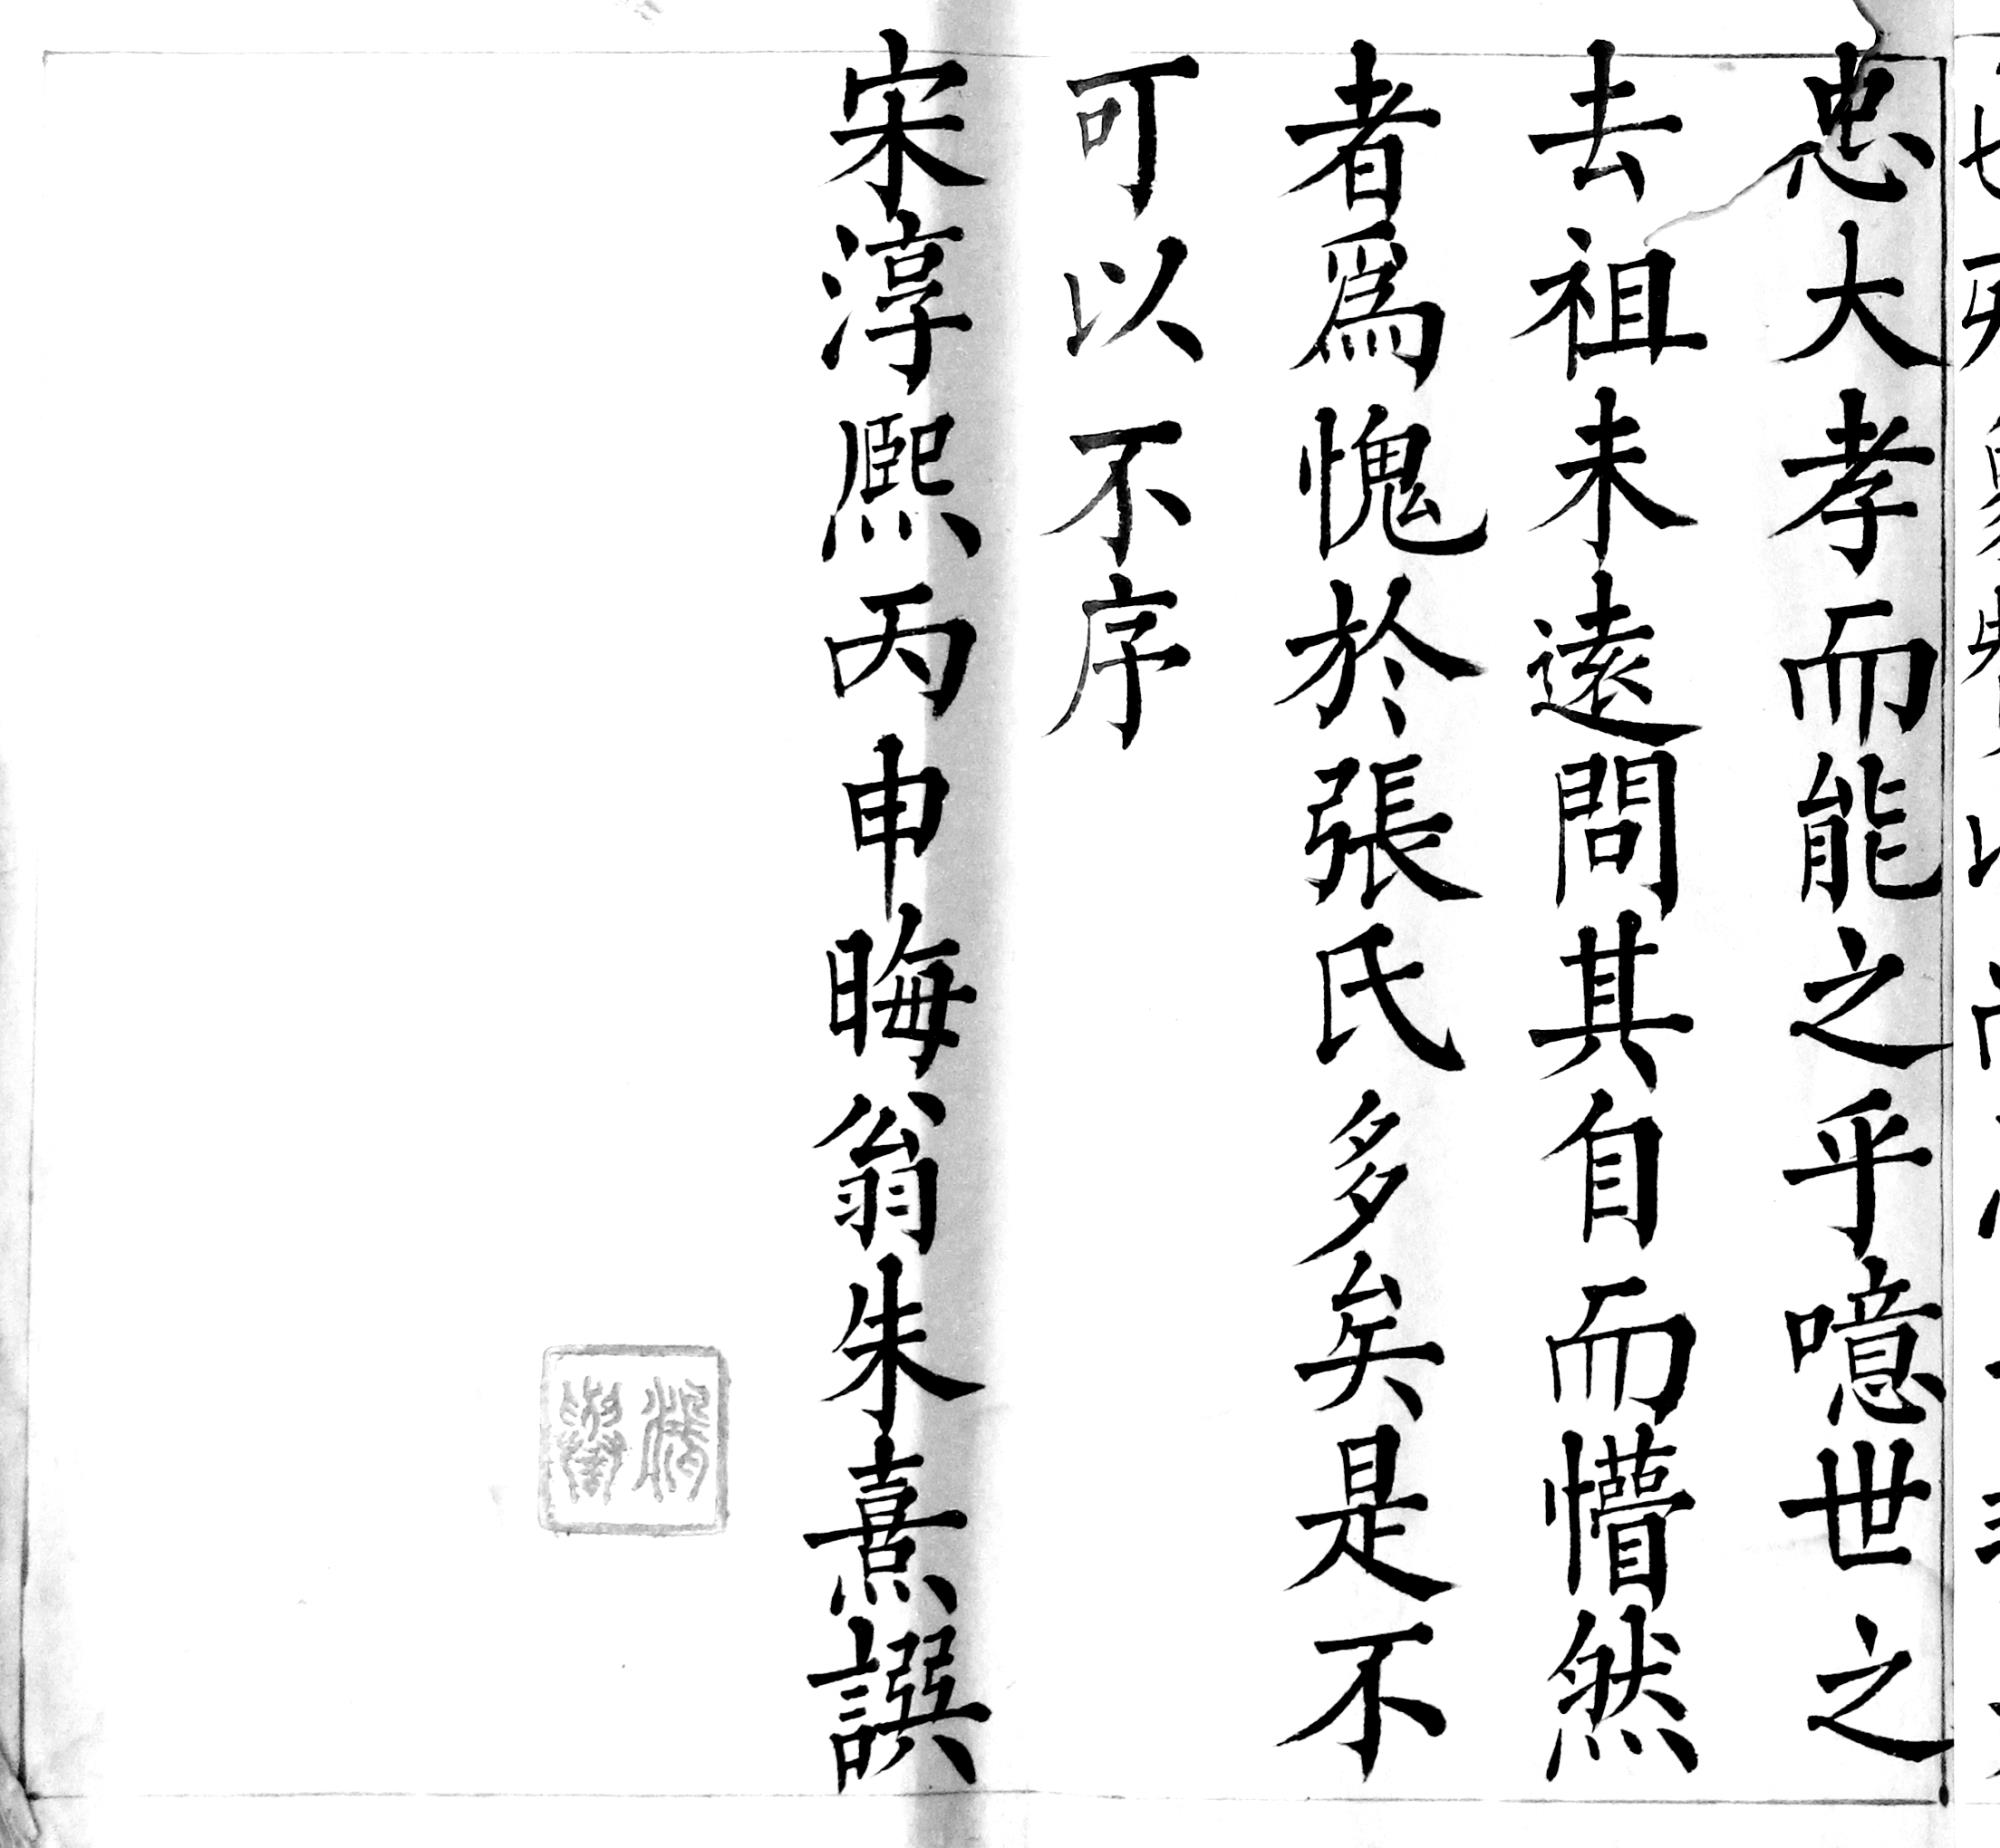 忠大孝而能之乎噫世之
去祖未遠問其自而懵然
者爲愧於張氏多矣是不
可以不序
宋淳熙丙申晦翁朱熹譔